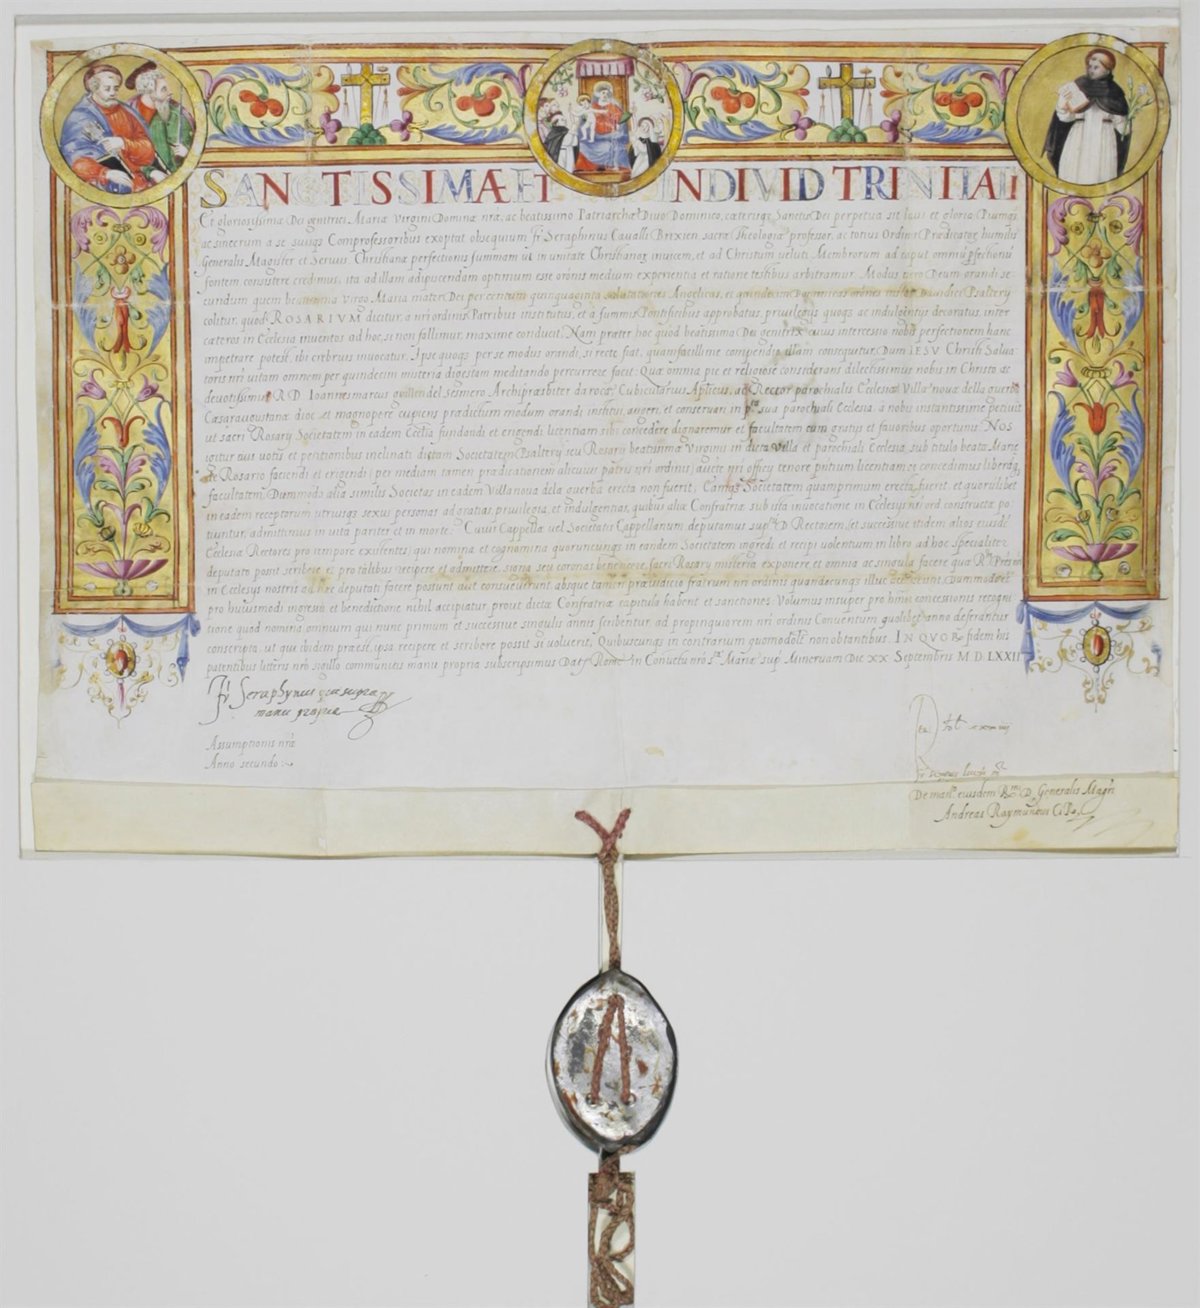 SANCTISSIMÆ ET INDIVID TRINITATI
Et gloriosissimæ Dei genitrici Mariæ Virgini Dominæ nræ, ac beatissimo Patriarchæ Diuo Dominico, cæterisq; Sanctis Dei perpetua sit laus et gloria
ac sincerum a se suisq; Comprofessoribus exoptat obsequium fr Seraphinus Caualli Brixien sacræ Theologiæ professor, ac totius Ordinis humilis
Generalis Magister et Seruus Christianæ perfectionis summam ut in unitate Christianos inuicem, et ad Christum ueluti Membrorum ad caput omniu pfectionu
fontem consistere credimus, ita ad illam adipiscendam optimum esse oronis medium experientia et ratione testibus arbitramur. Modus uero Deum orandi se-
cundum quem beatissima Virgo Maria mater Dei per centum quinquaginta salutationes Angelicas, et quindecim Dominicas orones Dauidici Psalterij
colitur, quod ROSARIVM dicitur, a nri ordinis Patribus institutus, et a summis Pontificibus approbatus, priuilegijs quoq; ac indulgentijs decoratus, inter
cæteros in Ecclesia inuentos ad hoc, si non fallimur, maxime conducit. Nam præter hoc quod beatissima Dei genitrix cuius intercessio nobis perfectionem hanc
impetrare potest, ibi crebrius inuocatur. Ipse quoq; per se modus orandi, si recte fiat, quam facillime compendio illam consequitur, Dum IESV Christi Salua-
toris nri uitam omnem per quindecim misteria digestam meditando percurrere facit. Quæ omnia pie et religiose considerans dilectissimus nobis in Christo ac
deuotissimus R D Ioannes marcus del sesmero Archipræsbiter Cubicularius Aplicus, ac Rector parochialis Ecclesiæ Villæ noua dela guerba
Cæsaraugustanæ dioc et magnopere cupiens prædictum modum orandi institui, augeri, et conseruari in sua parochiali Ecclesia, a nobis instantissime petiuit
ut sacri Rosarij Societatem in eadem Ecclia fundandi et erigendi licentiam sibi concedere dignaremur et facultatem cum gratijs et fauoribus oportunis NOS
igitur eius uotis et petitionibus inclinati dictam Societatem Psalterij seu Rosarij beatissimæ Virginis in dicta Villa et parochiali Ecclesia sub titulo beatæ Mariæ
de Rosario faciendi et erigendi, per mediam tamen prædicationem alicuius patris nri ordinis, aucte nri officij tenore pntium licentiam ei concedimus liberaq;
facultatem. Dummodo alia similis Societas in eadem Villanoua dela guerba erecta non fuerit; Eamq; Societatem quamprimum erecta fuerit et quorumlibet
in eadem receptorum utriusque sexus personas ad gratias, priuilegia, et indulgentias, quibus aliæ Confratriæ sub ista inuocatione in Ecclesijs nri ord constructæ po-
tiuntur, admittimus in uita pariter et in morte. Cuius Cappellæ uel Societatis Cappellanum deputamus D Rectorem, et successiue eiusdem alios eiusde
Ecclesiæ Rectores pro tempore existentes, qui nomina et cognomina quorumcunq; in eandem Societatem ingredi et recipi uolentum in libro ad hoc specialiter
deputato possit scribere et pro talibus recipere et admittere, signa seu coronas benedicere, sacri Rosarij misteria exponere et omnia ac singula facere quæ
in Ecclesijs nostris ad hæc deputati facere possunt aut consueuerunt absque tamen præiudicio fratrum nri ordinis quandocunq; illuc Dummodo et
pro huiusmodi ingressu et benedictione nihil accipiatur, prout dictæ Confratriæ capitula habent et sanctiones. Volumus insuper pro huius concessionis recogni-
tione quod nomina omnium qui nunc primum et successiue singulis annis scribentur, ad propinquiorem nri ordinis Conuentum quolibet anno deferantur
conscripta, ut qui ibidem præest, ipsa recipere et scribere possit si uoluerit, Quibuscunq; in contrarium non obstantibus. IN QVOR fidem his
patentibus litteris nro sigillo communitis manu propria subscripsimus Dat Romæ in Conuetu nro Mariæ sup Mineruam Die XX Septembris M D LXXII
fr Seraphynus qui supra
manu propria
Assumptionis nræ
Anno secundo
De man eiusdem R D Generalis Magri
Andreas Raymundus